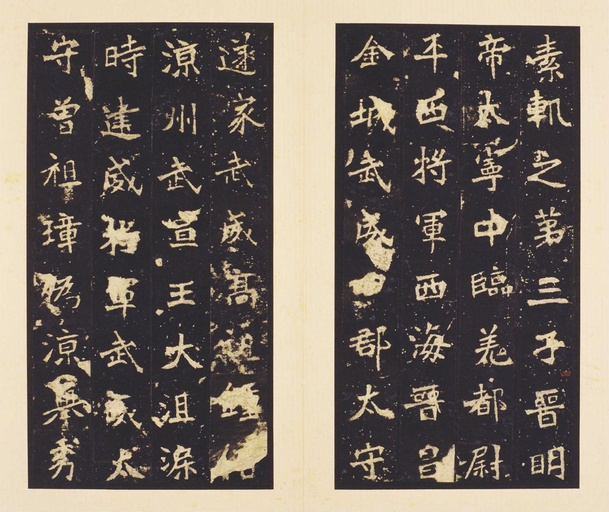 素軌之第三子晉明
帝大寧中臨羌都尉
平西將軍西海晉昌
金城武威郡太守
遂家武威高祖鍾
涼州武宣王大沮渠
時建威將軍武威太
守曾祖璋偽涼舉秀